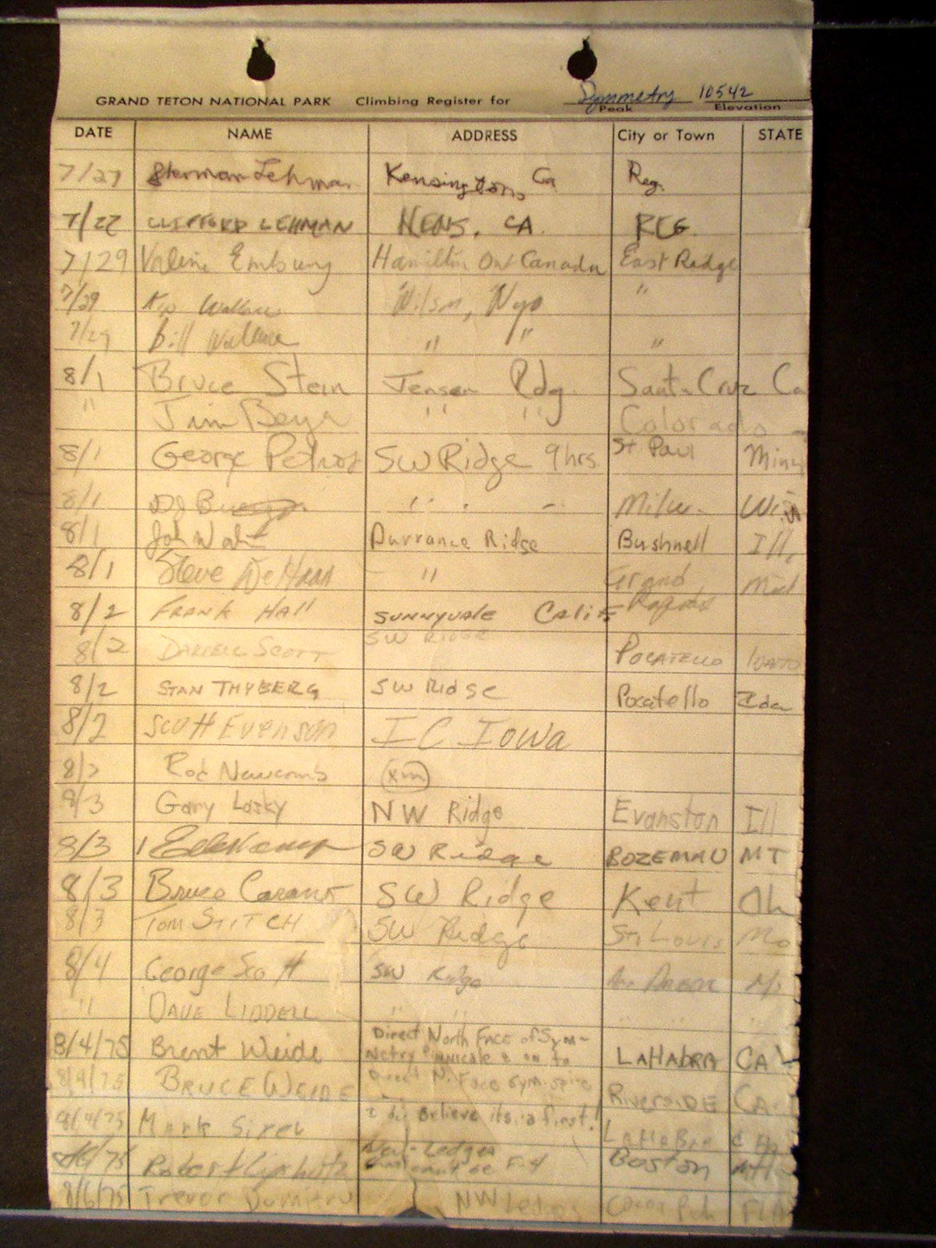 GRAND TETON NATIONAL PARK Climbing Register for Symmetry 10542
Peak Elevation
DATE NAME ADDRESS City or Town STATE
7/27 Sherman Lehman Kensington Ca Reg.
7/22 CLIFFORD LEHMAN KENS. CA. REG.
7/29 Valerie Embury Hamilton Ont Canada East Ridge
7/29 Wallace Wilson, Wyo "
7/29 Bill Wallace " " "
8/1 Bruce Stein Jensen Rdg Santa Cruz Ca
" Jim Beyer " " Colorado -
8/1 George SW Ridge 9 hrs. St Paul Minn
8/1 Milw. Wis
8/1 John Durrance Ridge Bushnell Ill.
8/1 Steve DeHaan " Grand Rapids Mich
8/2 FRANK HALL SUNNYVALE Calif
SW RIDGE
8/2 DARRELL SCOTT POCATELLO IDAHO
8/2 STAN THYBERG SW Ridge Pocatello Ida
8/2 SCOTT Evenson I C Iowa
8/2 Rod Newcomb
8/3 Gary Lasky NW Ridge Evanston Ill
8/3 SW Ridge BOZEMAN MT
8/3 Bruce SW Ridge Kent Oh
8/3 TOM STITCH SW Ridge St. Louis Mo
8/4 George Scott SW Ridge Ann Arbor Mi
" DAVE LIDDELL " " " " "
8/4/75 Brent Weide Direct North Face of Sym- LAHABRA CAL
metry Pinnacle & on to
8/4/75 BRUCE WEIDE Direct N. Face Sym. spire RIVERSIDE CA.
8/4/75 Mark I do believe its a first! LaHabra
75 Robert Ledges Boston
8/6/75 Trevor NW Ledges Cocoa Bch FLA